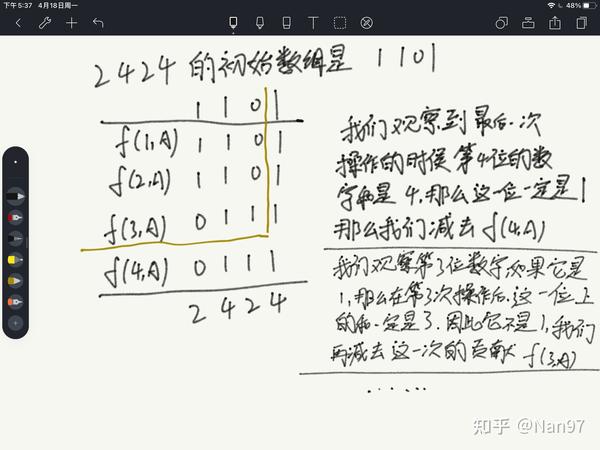 下午5:37 4月18日周一
48%
2424的初始数组是 1101
1 1 0 1
f(1,A) 1 1 0 1
f(2,A) 1 1 0 1
f(3,A) 0 1 1 1
f(4,A) 0 1 1 1
2 4 2 4
我们观察到最后一次
操作的时候第4位的数
字和是4,那么这一位一定是1
那么我们减去f(4,A)
我们观察第3位数字如果它是
1,那么在第3次操作后,这一位上
的和一定是3.因此它不是1,我们
再减去这一次的贡献f(3,A)
......
知乎 @Nan97